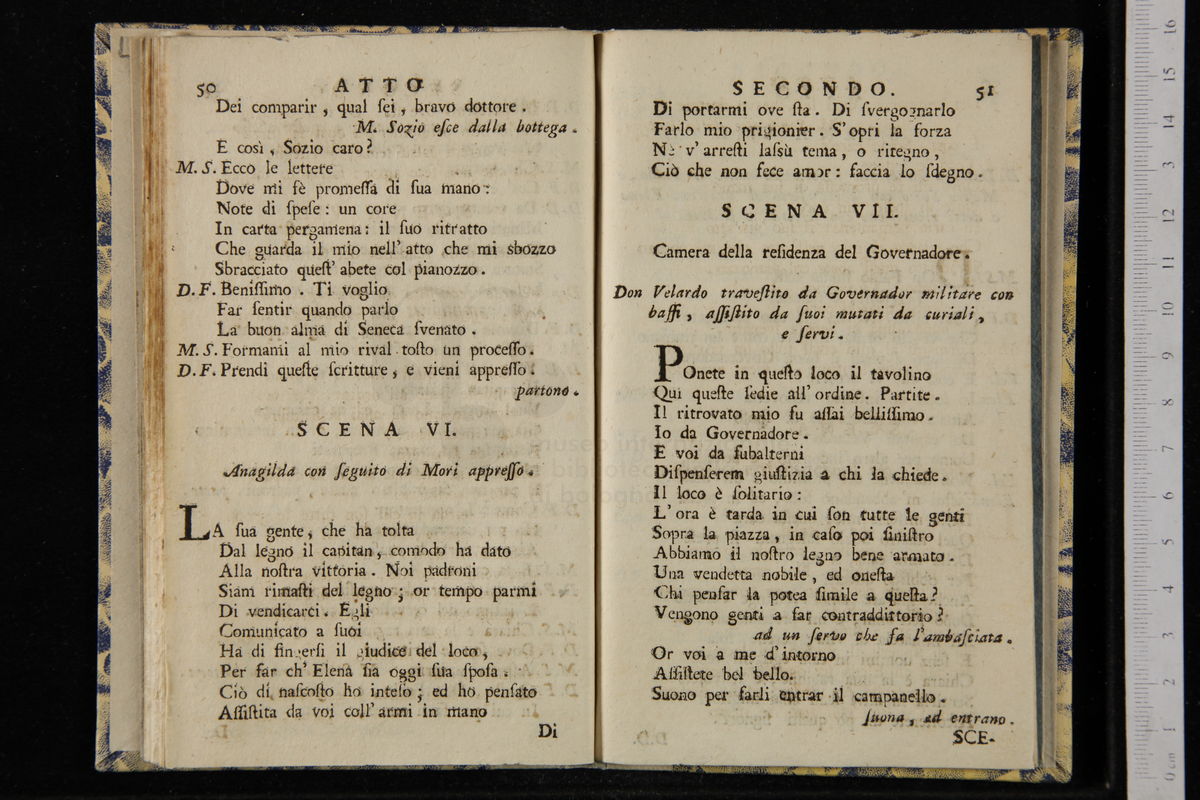 50 ATTO
Dei comparir, qual ſei, bravo dottore.
M. Sozio eſce dalla bottega.
E così, Sozio caro?
M. S. Ecco le lettere
Dove mi fè promeſſa di ſua mano:
Note di ſpeſe: un core
In carta pergamena: il ſuo ritratto
Che guarda il mio nell' atto che mi sbozzo
Sbracciato queſt' abete col pianozzo.
D. F. Beniſſimo. Ti voglio
Far ſentir quando parlo
La buon alma di Seneca ſvenato.
M. S. Formami al mio rival toſto un proceſſo.
D. F. Prendi queſte ſcritture, e vieni appreſſo.
partono.
SCENA VI.
Anagilda con ſeguito di Mori appreſſo.
LA ſua gente, che ha tolta
Dal legno il capitan, comodo ha dato
Alla noſtra vittoria. Noi padroni
Siam rimaſti del legno; or tempo parmi
Di vendicarci. Egli
Comunicato a ſuoi
Ha di fingerſi il giudice del loco,
Per far ch' Elena ſia oggi ſua ſpoſa.
Ciò di naſcoſto ho inteſo; ed ho penſato
Aſſiſtita da voi coll' armi in mano
Di
SECONDO. 51
Di portarmi ove ſta. Di ſvergognarlo
Farlo mio prigionier. S' opri la forza
Nè v' arreſti laſsù tema, o ritegno,
Ciò che non fece amor: faccia lo ſdegno.
SCENA VII.
Camera della reſidenza del Governadore.
Don Velardo traveſtito da Governador militare con
baffi, aſſiſtito da ſuoi mutati da curiali,
e ſervi.
POnete in queſto loco il tavolino
Qui queſte ſedie all' ordine. Partite.
Il ritrovato mio fu aſſai belliſſimo.
Io da Governadore.
E voi da ſubalterni
Diſpenſerem giuſtizia a chi la chiede.
Il loco è ſolitario:
L' ora è tarda in cui ſon tutte le genti
Sopra la piazza, in caſo poi ſiniſtro
Abbiamo il noſtro legno bene armato.
Una vendetta nobile, ed oneſta
Chi penſar la potea ſimile a queſta?
Vengono genti a far contraddittorio?
ad un ſervo che fa l'ambaſciata.
Or voi a me d' intorno
Aſſiſtete bel bello.
Suono per farli entrar il campanello.
ſuona, ad entrano.
SCE-